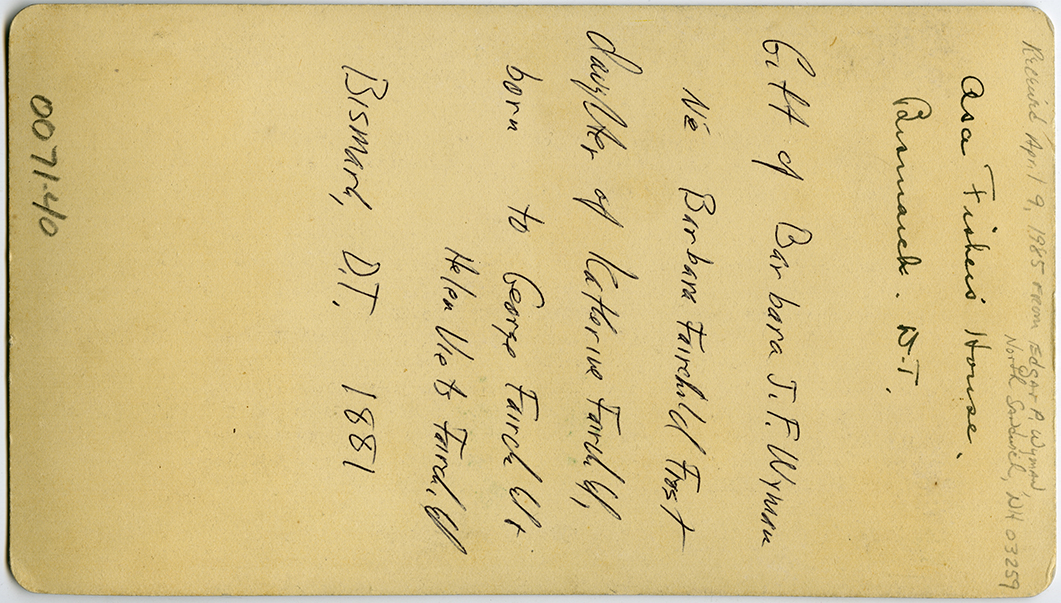 Received April 9, 1985 from Edgar P. Wyman,
North Sandwich, NH 03259
Asa Fisher's House.
Bismarck. D.T.
Gift of Barbara J.F. Wyman
Né Barbara Fairchild Frost
daughter of Katharine Fairchild,
born to George Fairchild +
Helen Viets Fairchild
Bismark, D.T. 1881
0071-40